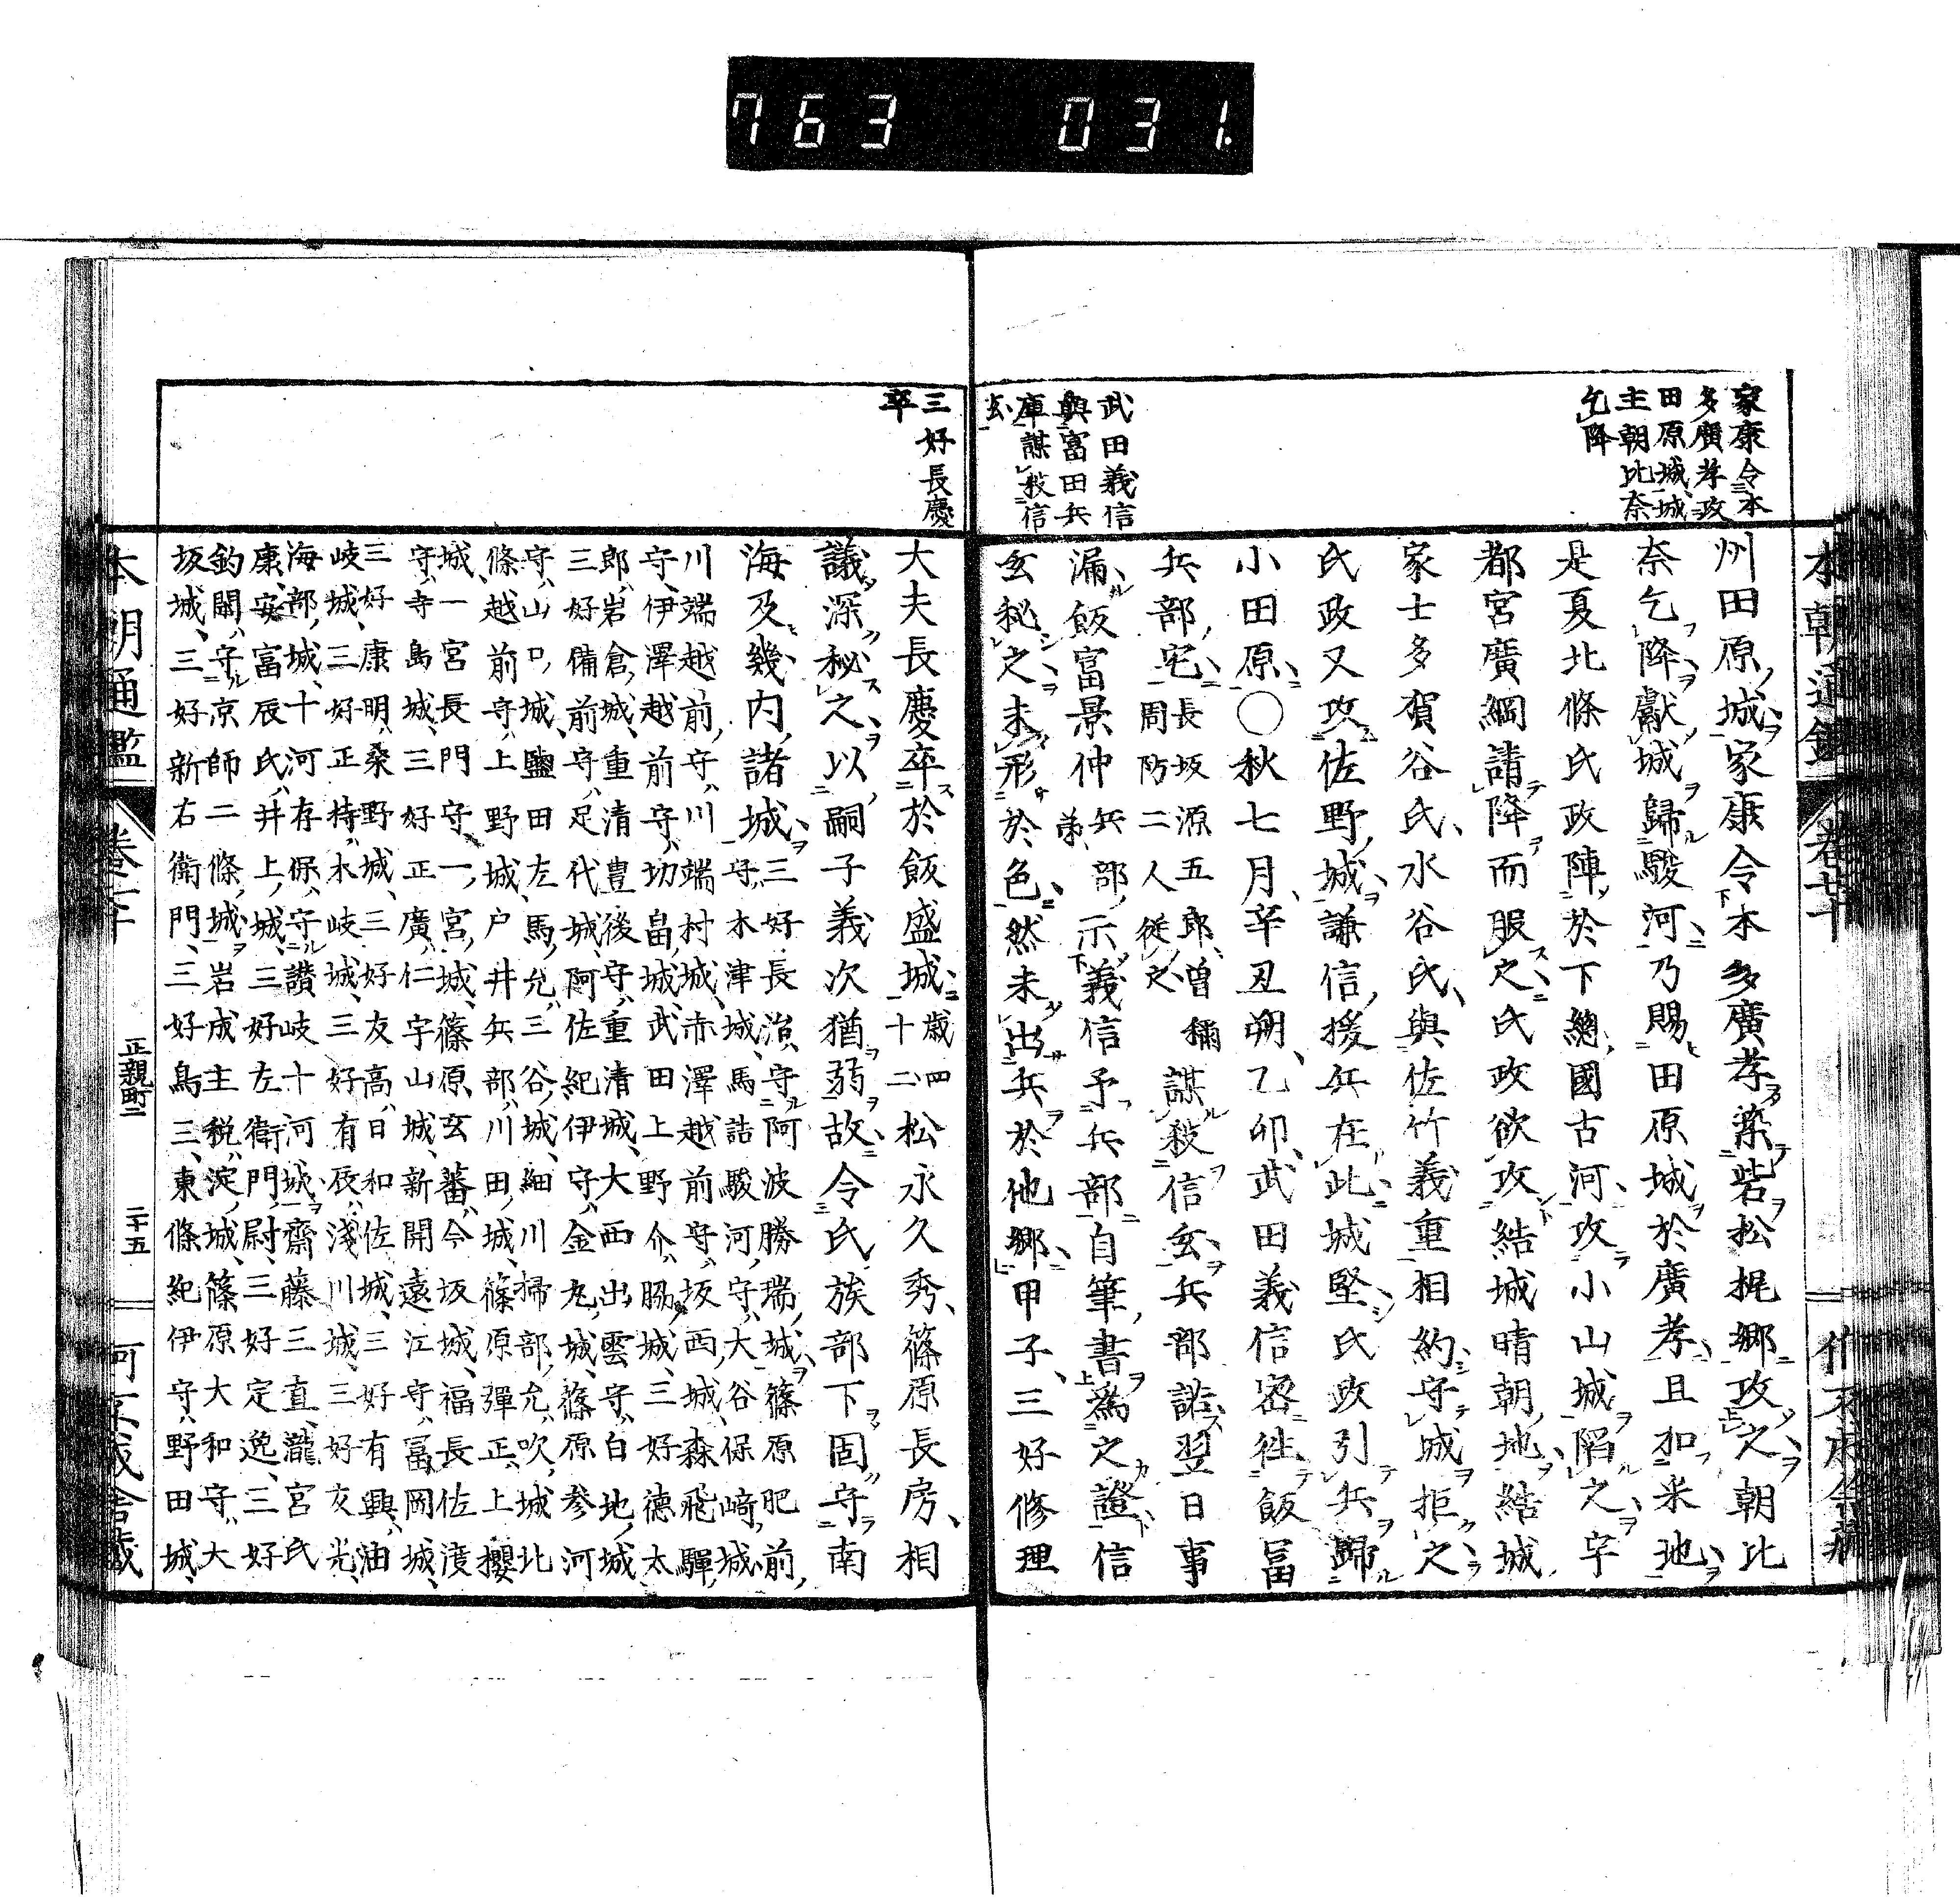 763 031
家康令本
多廣孝攻
田原城城
主朝比奈
乞降
武田義信
與富田兵
庫謀殺信
玄
州田原城家康令本多廣孝築砦松梶鄉攻之朝比
奈乞降獻城歸駿河乃賜田原城於廣孝且加釆地
是夏北條氏政陣於下總國古河攻小山城陷之宇
都宮廣綱請降而服之氏政欲攻結城晴朝地結城
家士多賀谷氏水谷氏與佐竹義重相約守城拒之
氏政又攻佐野城謙信援兵在此城堅氏政引兵歸
小田原○秋七月辛丑朔乙卯武田義信密往飯冨
兵部宅長坂源五郎曽禰
周防二人從之謀殺信玄兵部諾翌日事
漏飯富景仲兵部
弟示義信予兵部自筆書爲之證信
玄秘之未形於色然未出兵於他鄉甲子三好修理
三好長慶
卒
大夫長慶卒於飯盛城歲四
十二松永久秀篠原長房相
議深秘之以嗣子義次猶弱故令氏族部下固守南
海及幾内諸城三好長治守阿波勝瑞城篠原肥前
守木津城馬詰駿河守大谷保﨑城
川端越前守川端村城赤澤越前守坂西城森飛驒
守伊澤越前守切畠城武田上野介脇城三好德太
郎岩倉城重清豊後守重清城大西出雲守白地城
三好備前守足代城阿佐紀伊守金丸城篠原參河
守山口城鹽田左馬允三谷城細川掃部允吹城北
條越前守上野城戸井兵部川田城篠原彈正上櫻
城一宮長門守一宮城篠原玄蕃今坂城福長佐渡
守寺島城三好正廣仁宇山城新開遠江守冨岡城
三好康明桑野城三好友高日和佐城三好有興油
岐城三好正持木岐城三好有辰淺川城三好友光
海部城十河存保守讃岐十河城齋藤三直瀧宮氏
康安富辰氏井上城三好左衛門尉三好定逸三好
釣閑守京師二條城岩成主税淀城篠原大和守大
坂城三好新右衛門三好鳥三東條紀伊守野田城
本朝通鑑
正親町二
二十五